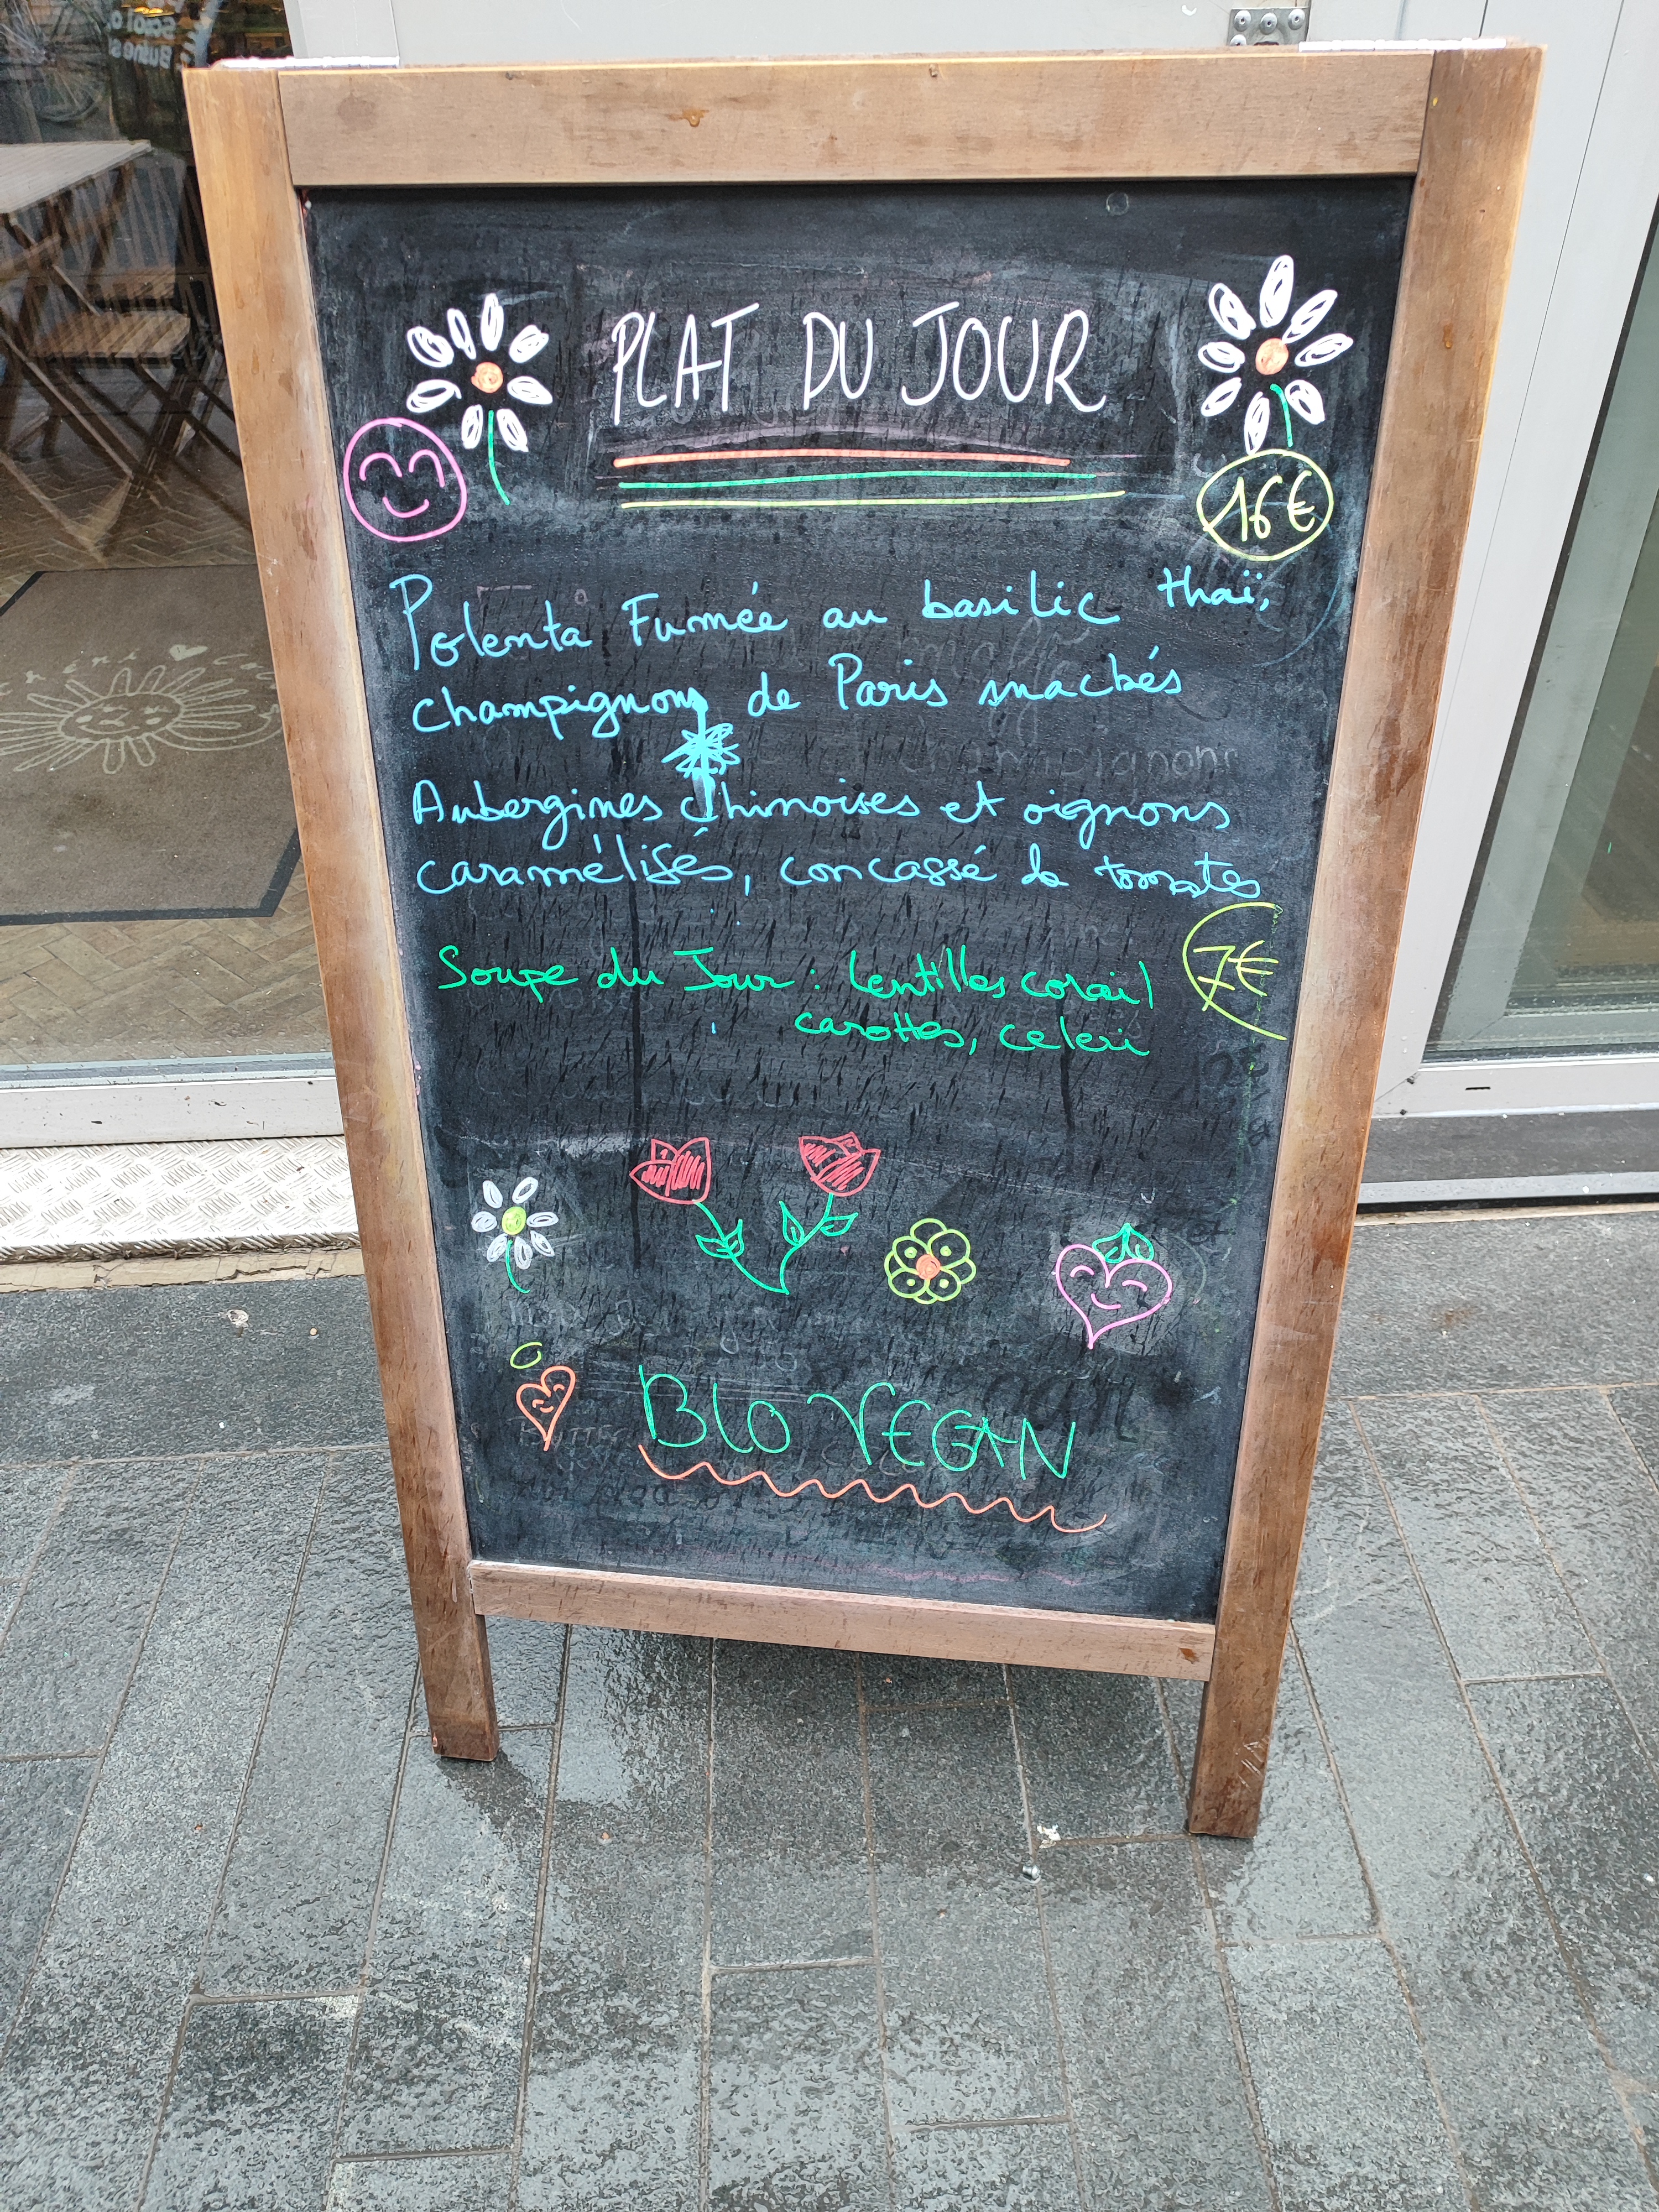 PLAT DU JOUR
16€
Polenta Fumée au basilic thaï,
champignons de Paris snackés
Aubergines chinoises et oignons
caramélisés, concassé de tomates
Soupe du Jour : lentilles corail
7€
carottes, celeri
BIO VEGAN